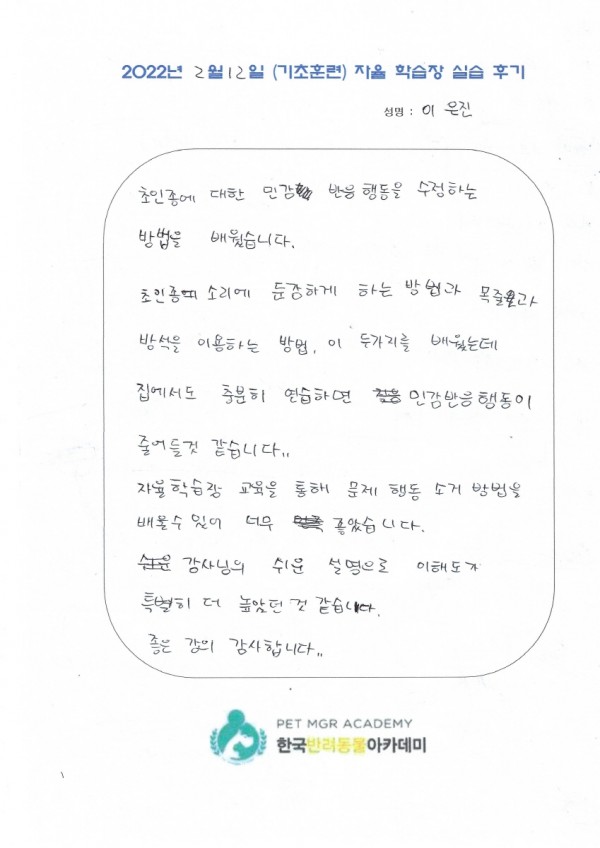 2022년 2월 12일 (기초훈련) 자율 학습장 실습 후기
성명 : 이 은진
초인종에 대한 민감 반응행동을 수정하는
방법을 배웠습니다.
초인종 소리에 둔감하게 하는 방법과 목줄과
방석을 이용하는 방법, 이 두가지를 배웠는데
집에서도 충분히 연습하면 민감반응행동이
줄어들것 같습니다..
자율학습장 교육을 통해 문제 행동 소거 방법을
배울수 있어 너무 좋았습니다.
강사님의 쉬운 설명으로 이해도가
특별히 더 높았던 것 같습니다.
좋은 강의 감사합니다..
PET MGR ACADEMY
한국반려동물아카데미